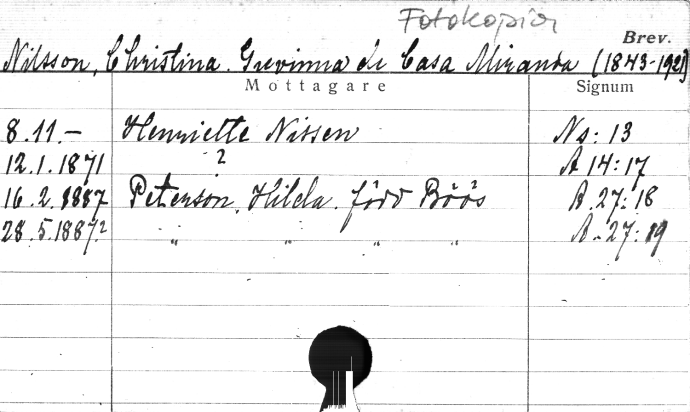 Fotokopior
Brev.
Nilsson, Christina. Grevinna de Casa Miranda (1843-1921)
Mottagare Signum
8.11.— Henriette Nissen Ns: 13
12.1.1871 ? A 14:17
16.2.1887 Peterson, Hilda, född Böös A.27:18
28.5.1887? " " " " A-27:19